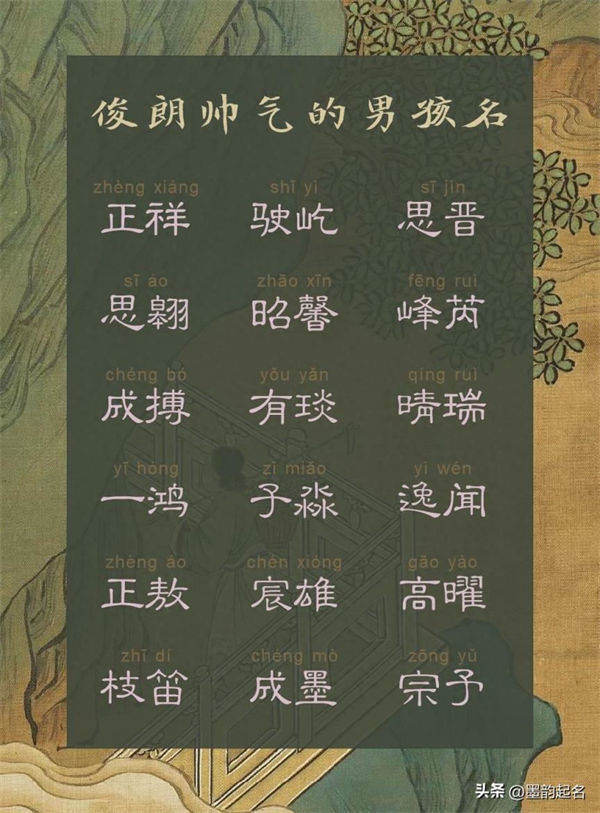 俊朗帅气的男孩名
zhèng xiáng shǐ yì sī jìn
正祥 驶屹 思晋
sī áo zhāo xīn fēng ruì
思翱 昭馨 峰芮
chéng bó yǒu yǎn qíng ruì
成搏 有琰 晴瑞
yī hóng zi miǎo yì wén
一鸿 子淼 逸闻
zhèng áo chén xióng gāo yào
正敖 宸雄 高曜
zhī dí chéng mò zōng yǔ
枝笛 成墨 宗予
头条 @墨韵起名